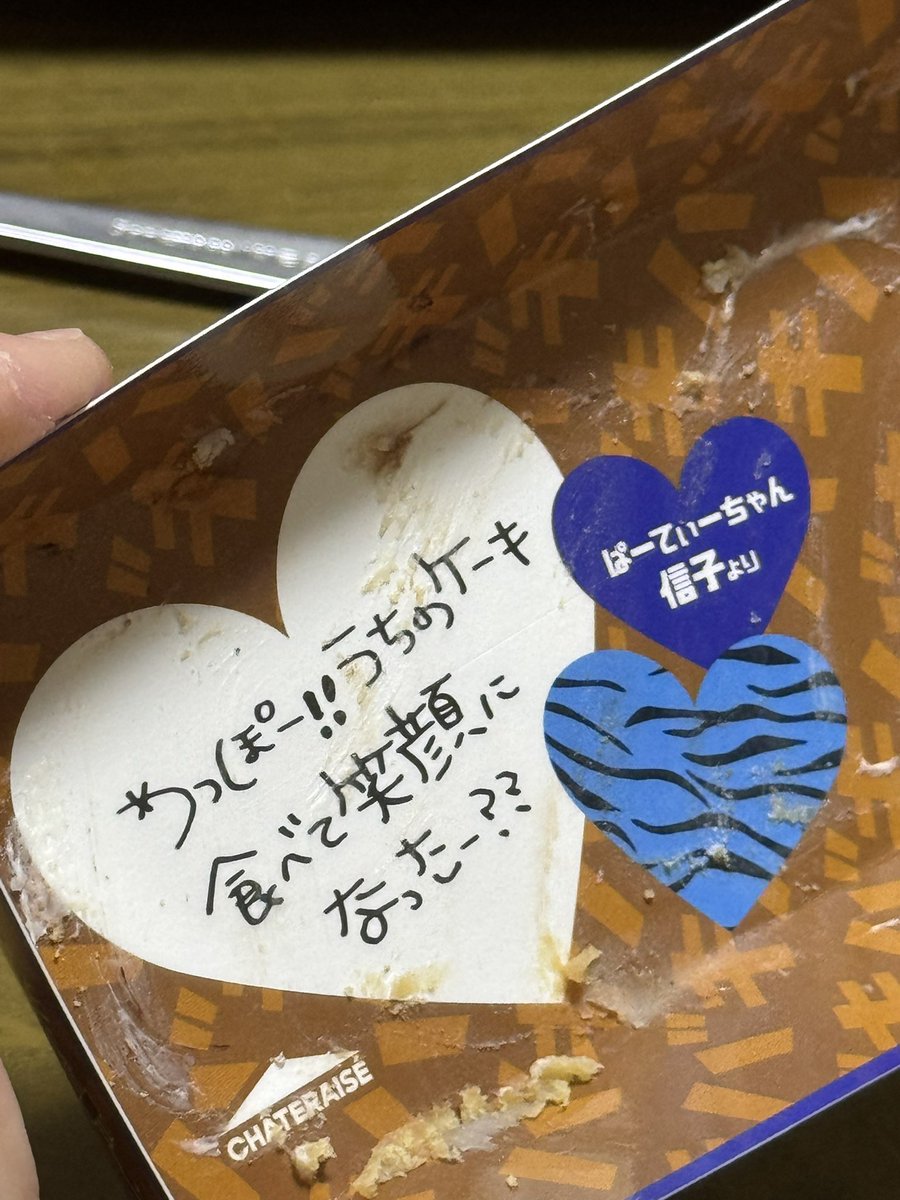 やっぽー!!うちのケーキ
食べて笑顔に
なったー??
ぱーてぃーちゃん
信子より
CHATERAISE